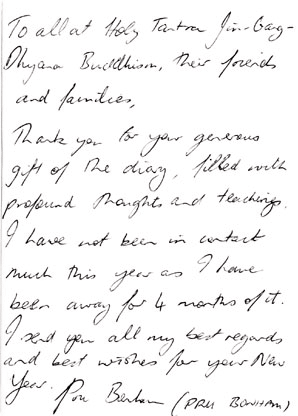 To all at Holy Tantra Jin-Gang-
Dhyana Buddhism, their friends
and families,
Thank you for your generous
gift of the diary, filled with
profound thoughts and teachings.
I have not been in contact
much this year as I have
been away for 4 months of it.
I send you all my best regards
and best wishes for your New
Year. Pru Bonham (PRU BONHAM)